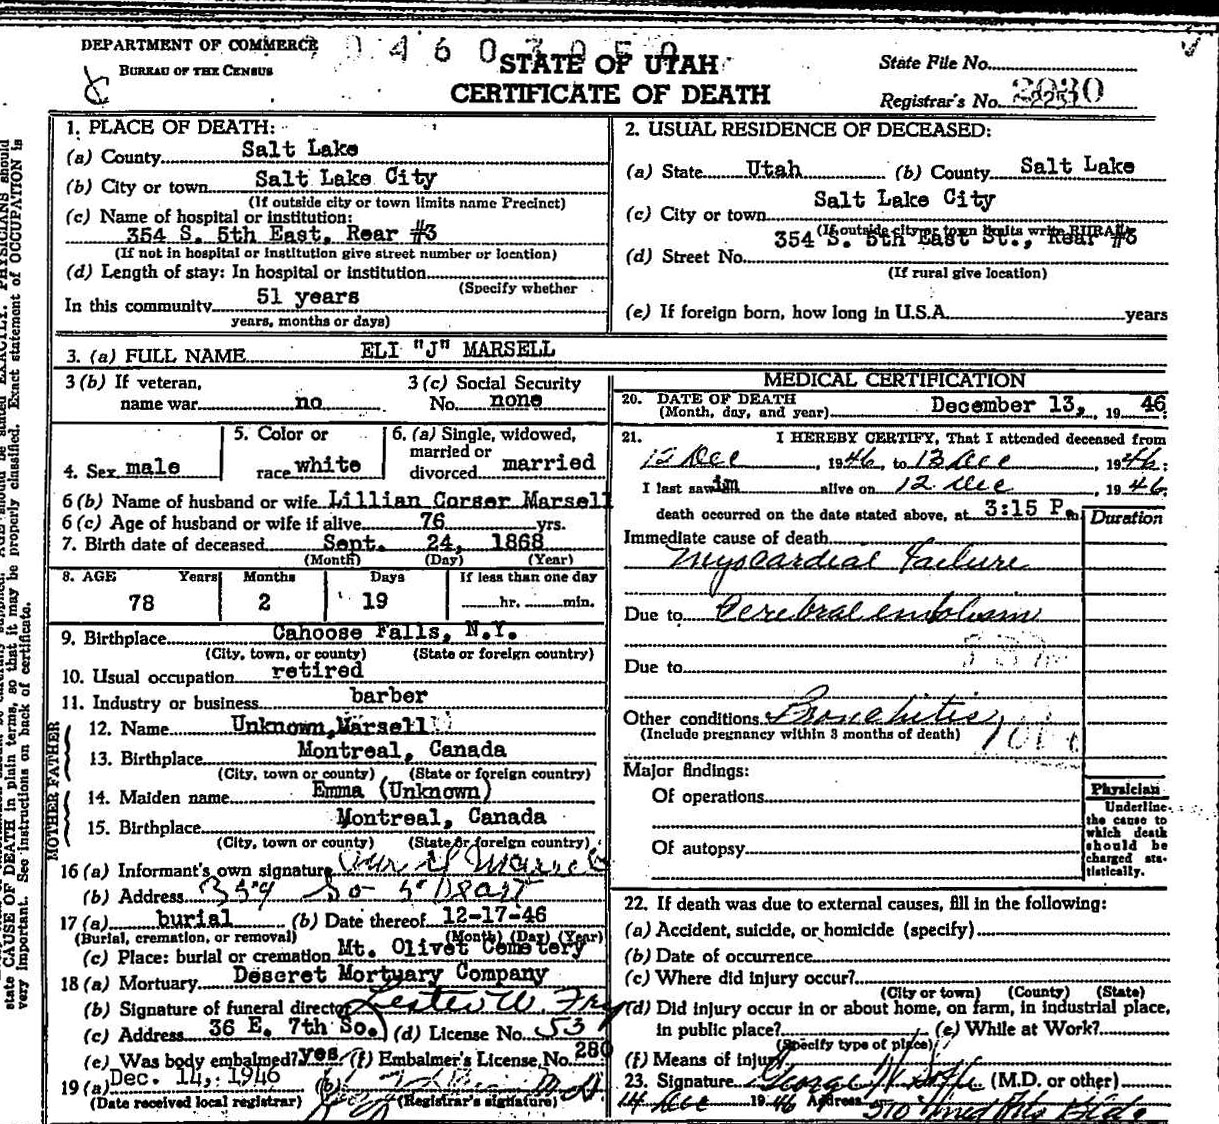 DEPARTMENT OF COMMERCE
BUREAU OF THE CENSUS
STATE OF UTAH
CERTIFICATE OF DEATH
State File No.
Registrar's No. 2030
1. PLACE OF DEATH:
(a) County Salt Lake
(b) City or town Salt Lake City
(If outside city or town limits name Precinct)
(c) Name of hospital or institution:
354 S. 5th East, Rear #3
(If not in hospital or institution give street number or location)
(d) Length of stay: In hospital or institution
(Specify whether
In this community 51 years
years, months or days)
2. USUAL RESIDENCE OF DECEASED:
(a) State Utah (b) County Salt Lake
(c) City or town Salt Lake City
(If outside city or town limits write RURAL)
(d) Street No. 354 S. 5th East St., Rear #3
(If rural give location)
(e) If foreign born, how long in U.S.A. years
3. (a) FULL NAME ELI "J" MARSELL
3 (b) If veteran, name war no
3 (c) Social Security No. none
4. Sex male
5. Color or race white
6. (a) Single, widowed, married or divorced married
6 (b) Name of husband or wife Lillian Corser Marsell
6 (c) Age of husband or wife if alive 76 yrs.
7. Birth date of deceased Sept. 24, 1868
(Month) (Day) (Year)
8. AGE Years Months Days If less than one day
78 2 19 hr. min.
9. Birthplace Cahoose Falls, N.Y.
(City, town, or county) (State or foreign country)
10. Usual occupation retired
11. Industry or business barber
FATHER
12. Name Unknown Marsell
13. Birthplace Montreal, Canada
(City, town or county) (State or foreign country)
MOTHER
14. Maiden name Emma (Unknown)
15. Birthplace Montreal, Canada
(City, town or county) (State or foreign country)
16 (a) Informant's own signature
(b) Address 354 So 5th East
17 (a) burial (b) Date thereof 12-17-46
(Burial, cremation, or removal) (Month) (Day) (Year)
(c) Place: burial or cremation Mt. Olivet Cemetery
18 (a) Mortuary Deseret Mortuary Company
(b) Signature of funeral director Lester W. Fry
(c) Address 36 E. 7th So. (d) License No. 53
(e) Was body embalmed? yes (f) Embalmer's License No. 280
19 (a) Dec. 14, 1946 (b)
(Date received local registrar) (Registrar's signature)
MEDICAL CERTIFICATION
20. DATE OF DEATH
(Month, day, and year) December 13, 1946
21. I HEREBY CERTIFY, That I attended deceased from
12 Dec, 1946, to 13 Dec, 1946;
I last saw im alive on 12 Dec, 1946
death occurred on the date stated above, at 3:15 P. m
Duration
Immediate cause of death
Myocardial Failure
Due to Cerebral embolism
Due to
Other conditions Bronchitis
(Include pregnancy within 3 months of death)
Major findings:
Of operations
Of autopsy
Physician
Underline the cause to which death should be charged statistically.
22. If death was due to external causes, fill in the following:
(a) Accident, suicide, or homicide (specify)
(b) Date of occurrence
(c) Where did injury occur?
(City or town) (County) (State)
(d) Did injury occur in or about home, on farm, in industrial place,
in public place? (e) While at Work?
(Specify type of place)
(f) Means of injury
23. Signature George (M.D. or other)
14 Dec 1946 Address 510